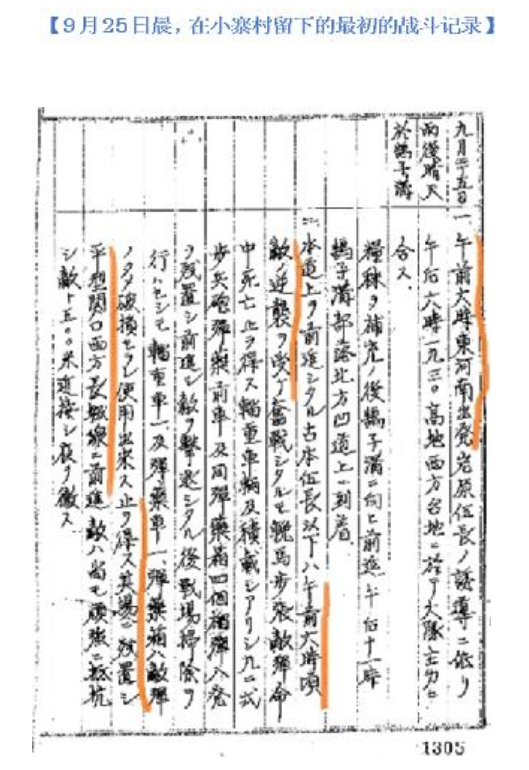 【9月25日晨，在小寨村留下的最初的战斗记录】
九月二十五日
雨後晴天
於鷂子澗
一 午前六時東河南出発岩原伍長ノ誘導ニ依リ
午后六時一九三〇高地西方台地ニ於テ大隊主力ニ
合ス
糧秣ヲ補充ノ後鷂子澗ニ向ヒ前進午后十一時
鷂子澗部落北方凹道上ニ到着
二 本道上ヲ前進シタル古本伍長以下ハ午前六時頃
敵ノ逆襲ヲ受ケ奮戦シタルモ輓馬敵弾命
中死亡止ヲ得ス輜重車輌及積載シアリシ九二式
歩兵砲弾薬前車及同弾薬箱四個榴弾八発
ヲ残置シ前進シ敵ヲ撃退シタル後戦場掃除ヲ
行ハセシモ輜重車一及弾薬車一弾薬箱ハ敵弾
ノタメ破損セラレ使用出来ス止ヲ得ス其場ニ放置シ
平型関口西方長城線ニ前進敵ハ尚モ頑強ニ抵抗
シ敵ト五〇〇米近接シ夜ヲ徹ス
1305